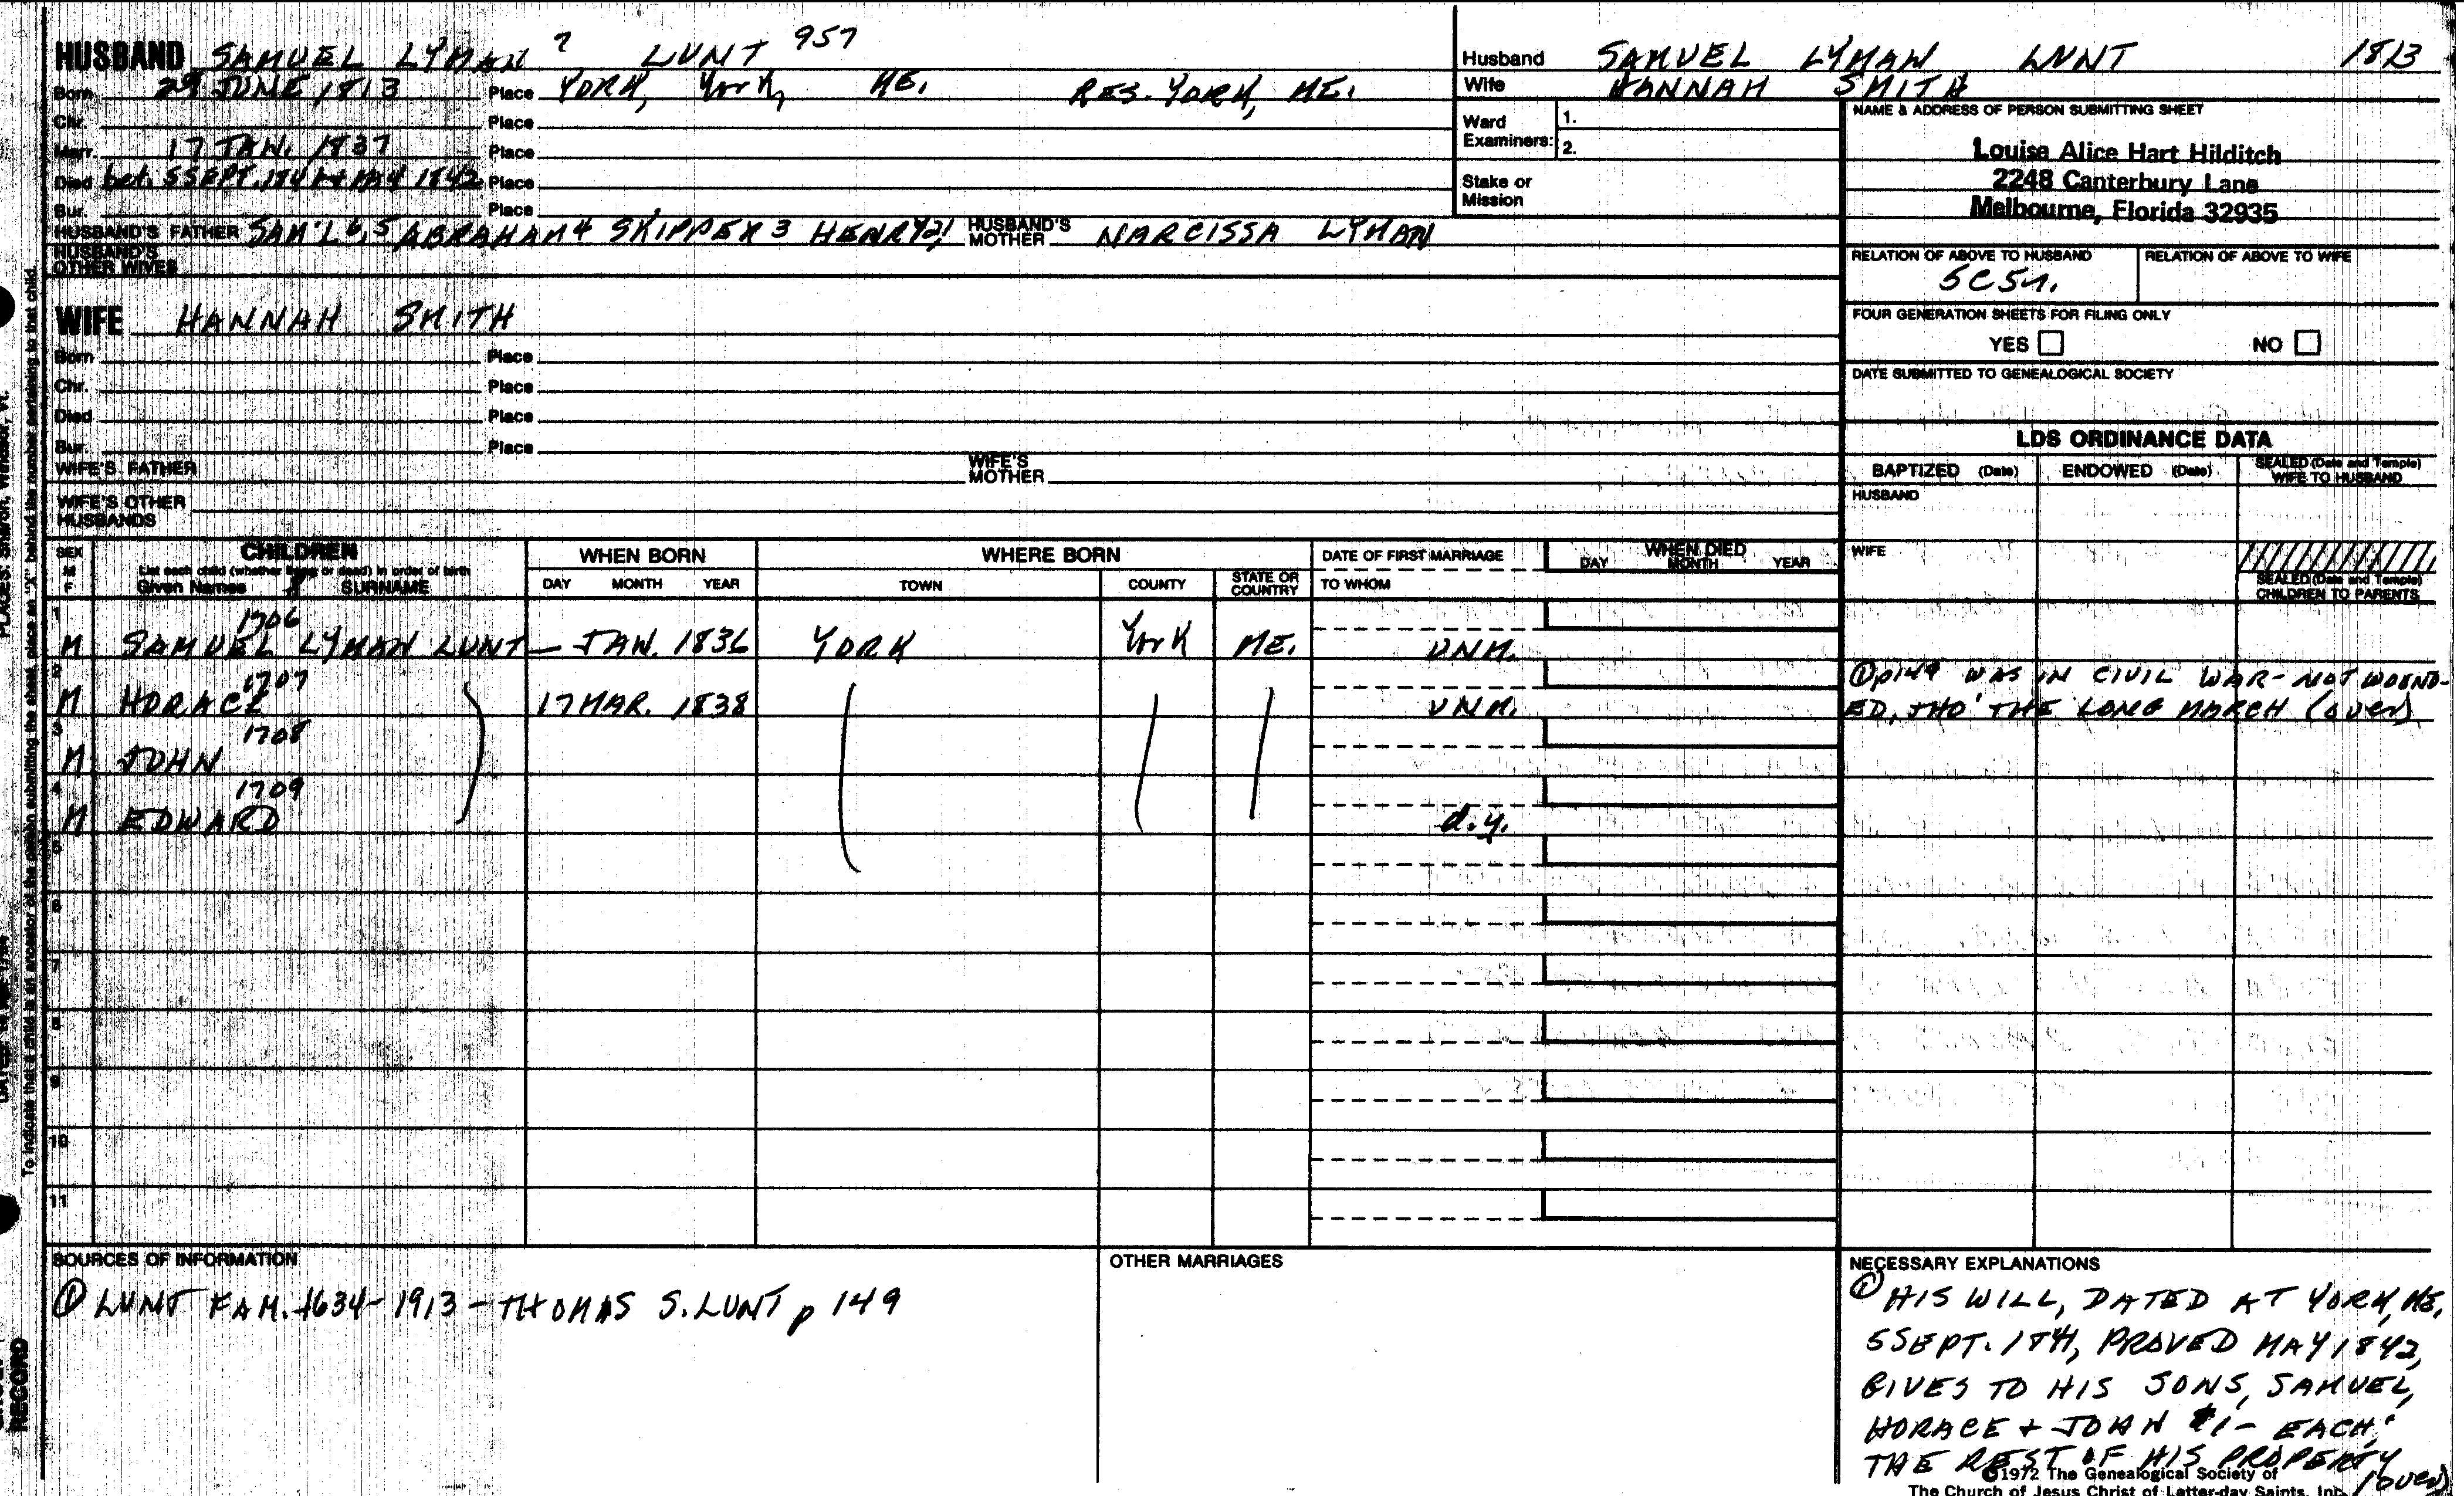 HUSBAND SAMUEL LYMAN 7 LUNT 957
Born 29 JUNE 1813 Place YORK, York, ME. RES. YORK, ME.
Chr. Place
Marr. 17 JAN. 1837 Place
Died bet. 5 SEPT. 1841 + MAY 1842 Place
Bur. Place
HUSBAND'S FATHER SAM'L 6, 5 ABRAHAM 4 SKIPPER 3 HENRY 2, 1 HUSBAND'S MOTHER NARCISSA LYMAN
HUSBAND'S OTHER WIVES
WIFE HANNAH SMITH
Born Place
Chr. Place
Died Place
Bur. Place
WIFE'S FATHER WIFE'S MOTHER
WIFE'S OTHER HUSBANDS
Husband SAMUEL LYMAN LUNT 1813
Wife HANNAH SMITH
Ward Examiners: 1.
2.
Stake or Mission
NAME & ADDRESS OF PERSON SUBMITTING SHEET
Louise Alice Hart Hilditch
2248 Canterbury Lane
Melbourne, Florida 32935
RELATION OF ABOVE TO HUSBAND RELATION OF ABOVE TO WIFE
5C5r.
FOUR GENERATION SHEETS FOR FILING ONLY
YES NO
DATE SUBMITTED TO GENEALOGICAL SOCIETY
LDS ORDINANCE DATA
BAPTIZED (Date) ENDOWED (Date) SEALED (Date and Temple) WIFE TO HUSBAND
HUSBAND
WIFE
SEALED (Date and Temple) CHILDREN TO PARENTS
SEX M F CHILDREN WHEN BORN WHERE BORN DATE OF FIRST MARRIAGE WHEN DIED
List each child (whether living or dead) in order of birth
Given Names 8 SURNAME DAY MONTH YEAR TOWN COUNTY STATE OR COUNTRY TO WHOM DAY MONTH YEAR
1 1706
M SAMUEL LYMAN LUNT — JAN. 1836 YORK York ME. UNM.
2 1707
M HORACE 17 MAR. 1838 UNM.
① p149 WAS IN CIVIL WAR - NOT WOUND-
ED, THO' THE LONG MARCH (over)
3 1708
M JOHN
4 1709
M EDWARD d.y.
5
6
7
8
9
10
11
SOURCES OF INFORMATION
① LUNT FAM. 1634-1913 - THOMAS S. LUNT p 149
OTHER MARRIAGES
NECESSARY EXPLANATIONS
① HIS WILL, DATED AT YORK, ME.
5 SEPT. 1841, PROVED MAY 1842,
GIVES TO HIS SONS, SAMUEL,
HORACE + JOHN $1- EACH;
THE REST OF HIS PROPERTY
(over)
©1972 The Genealogical Society of
The Church of Jesus Christ of Latter-day Saints, Inc.
To indicate that a child is an ancestor of the person submitting the sheet, place an "X" behind the number pertaining to that child.
PLACES: Sharon, Windsor, Vt.
RECORD